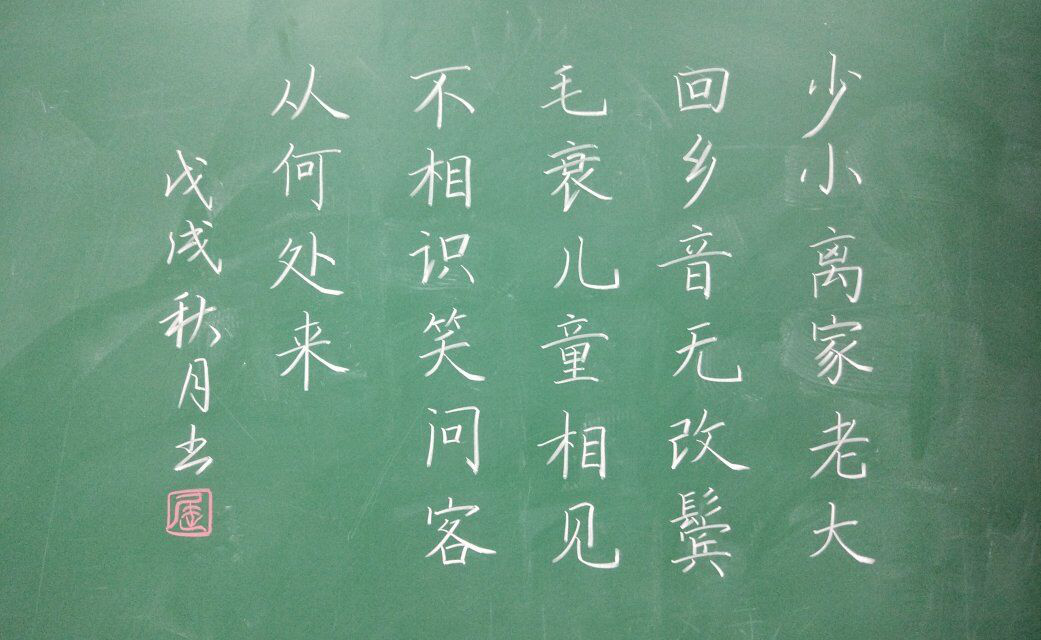 少小离家老大
回乡音无改鬓
毛衰儿童相见
不相识笑问客
从何处来
戊戌秋月书